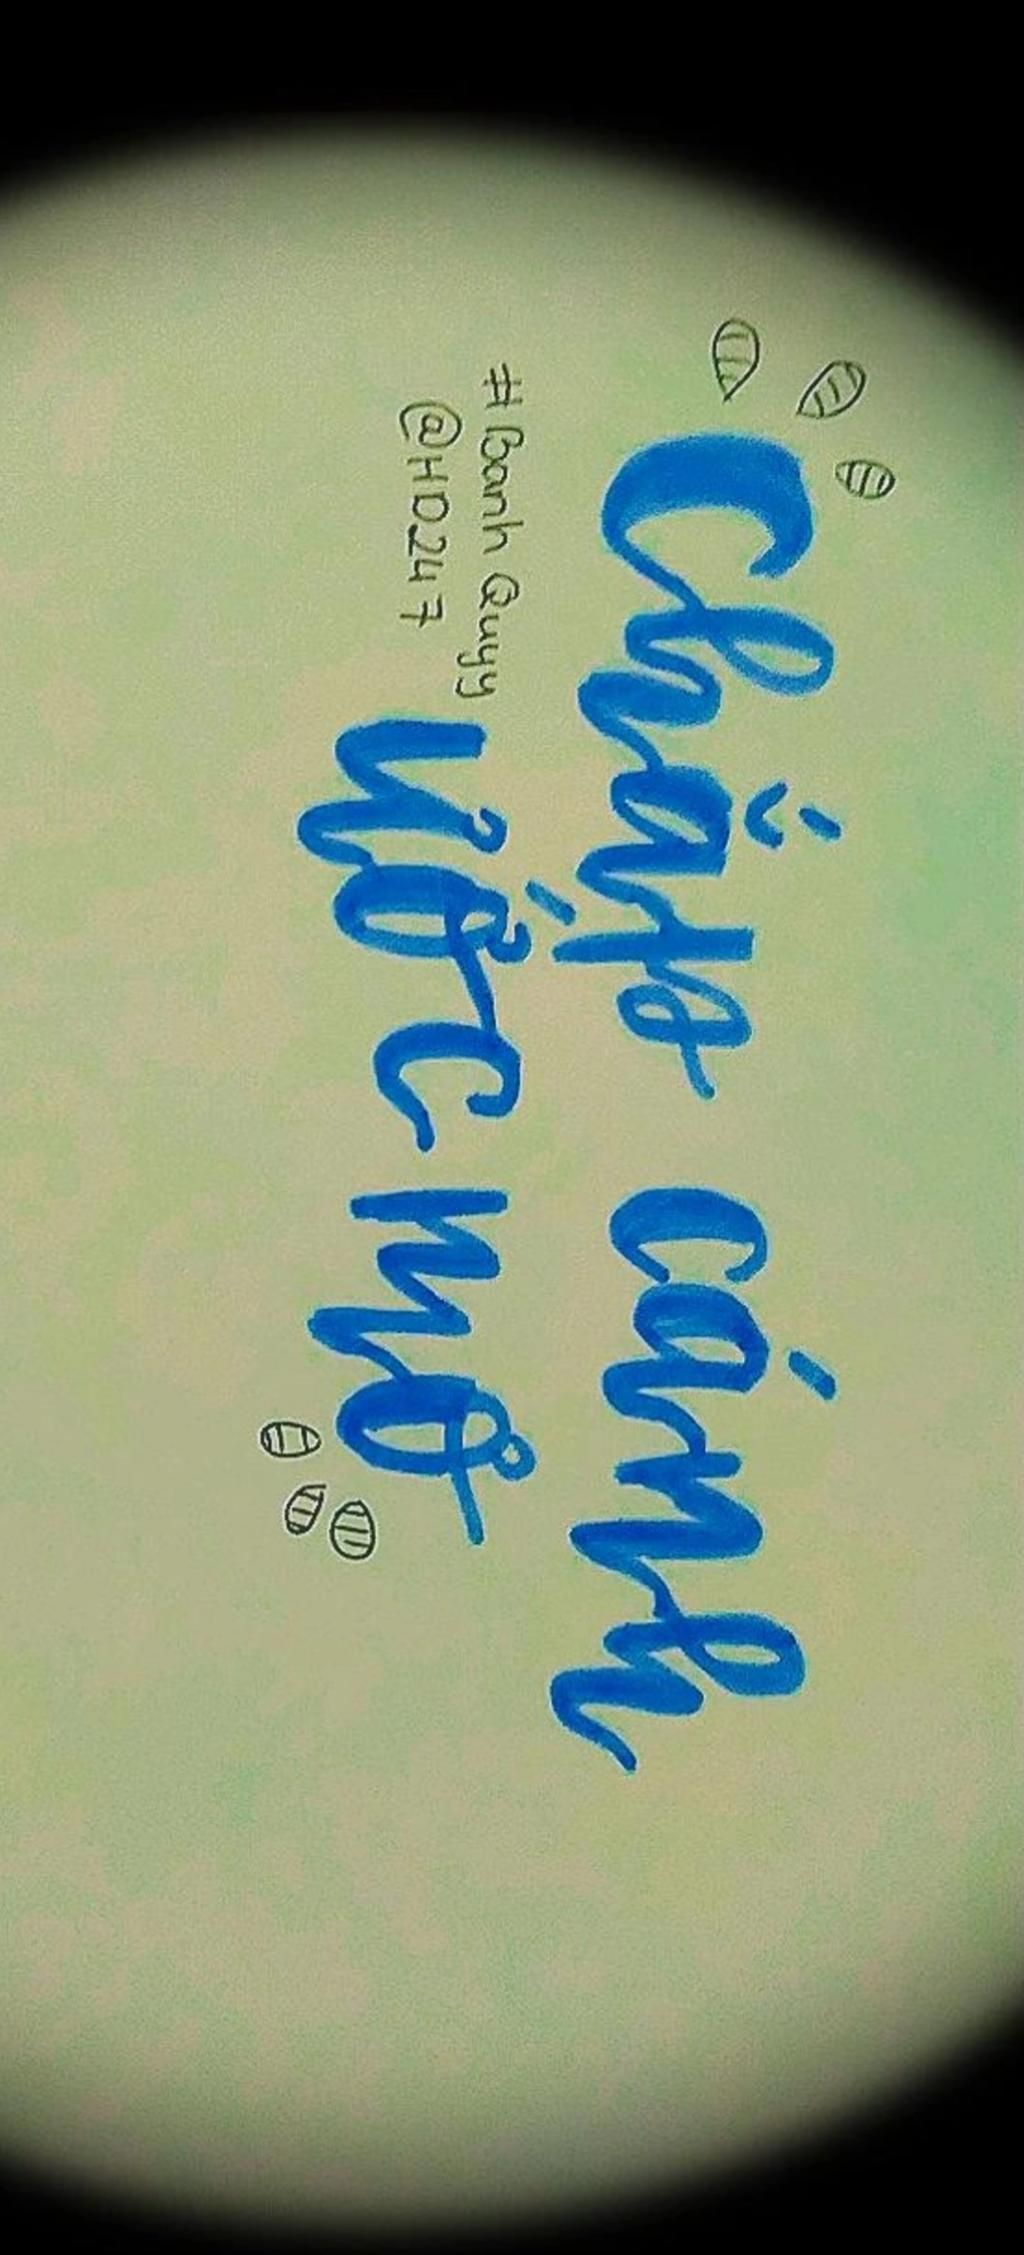 Chắp cánh
ước mơ
#Banh Quyy
@HD247